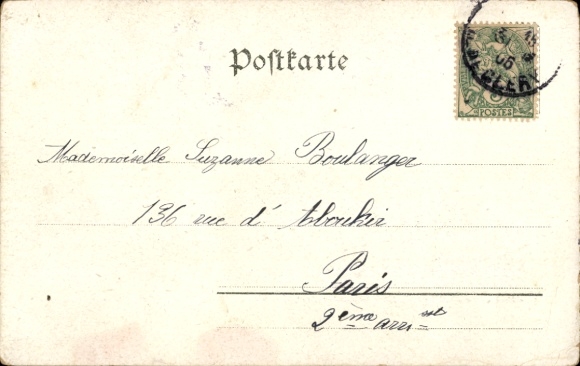 Postkarte
POSTES
Mademoiselle Suzanne Boulanger
136 rue d'Aboukir
Paris
2ème arrist